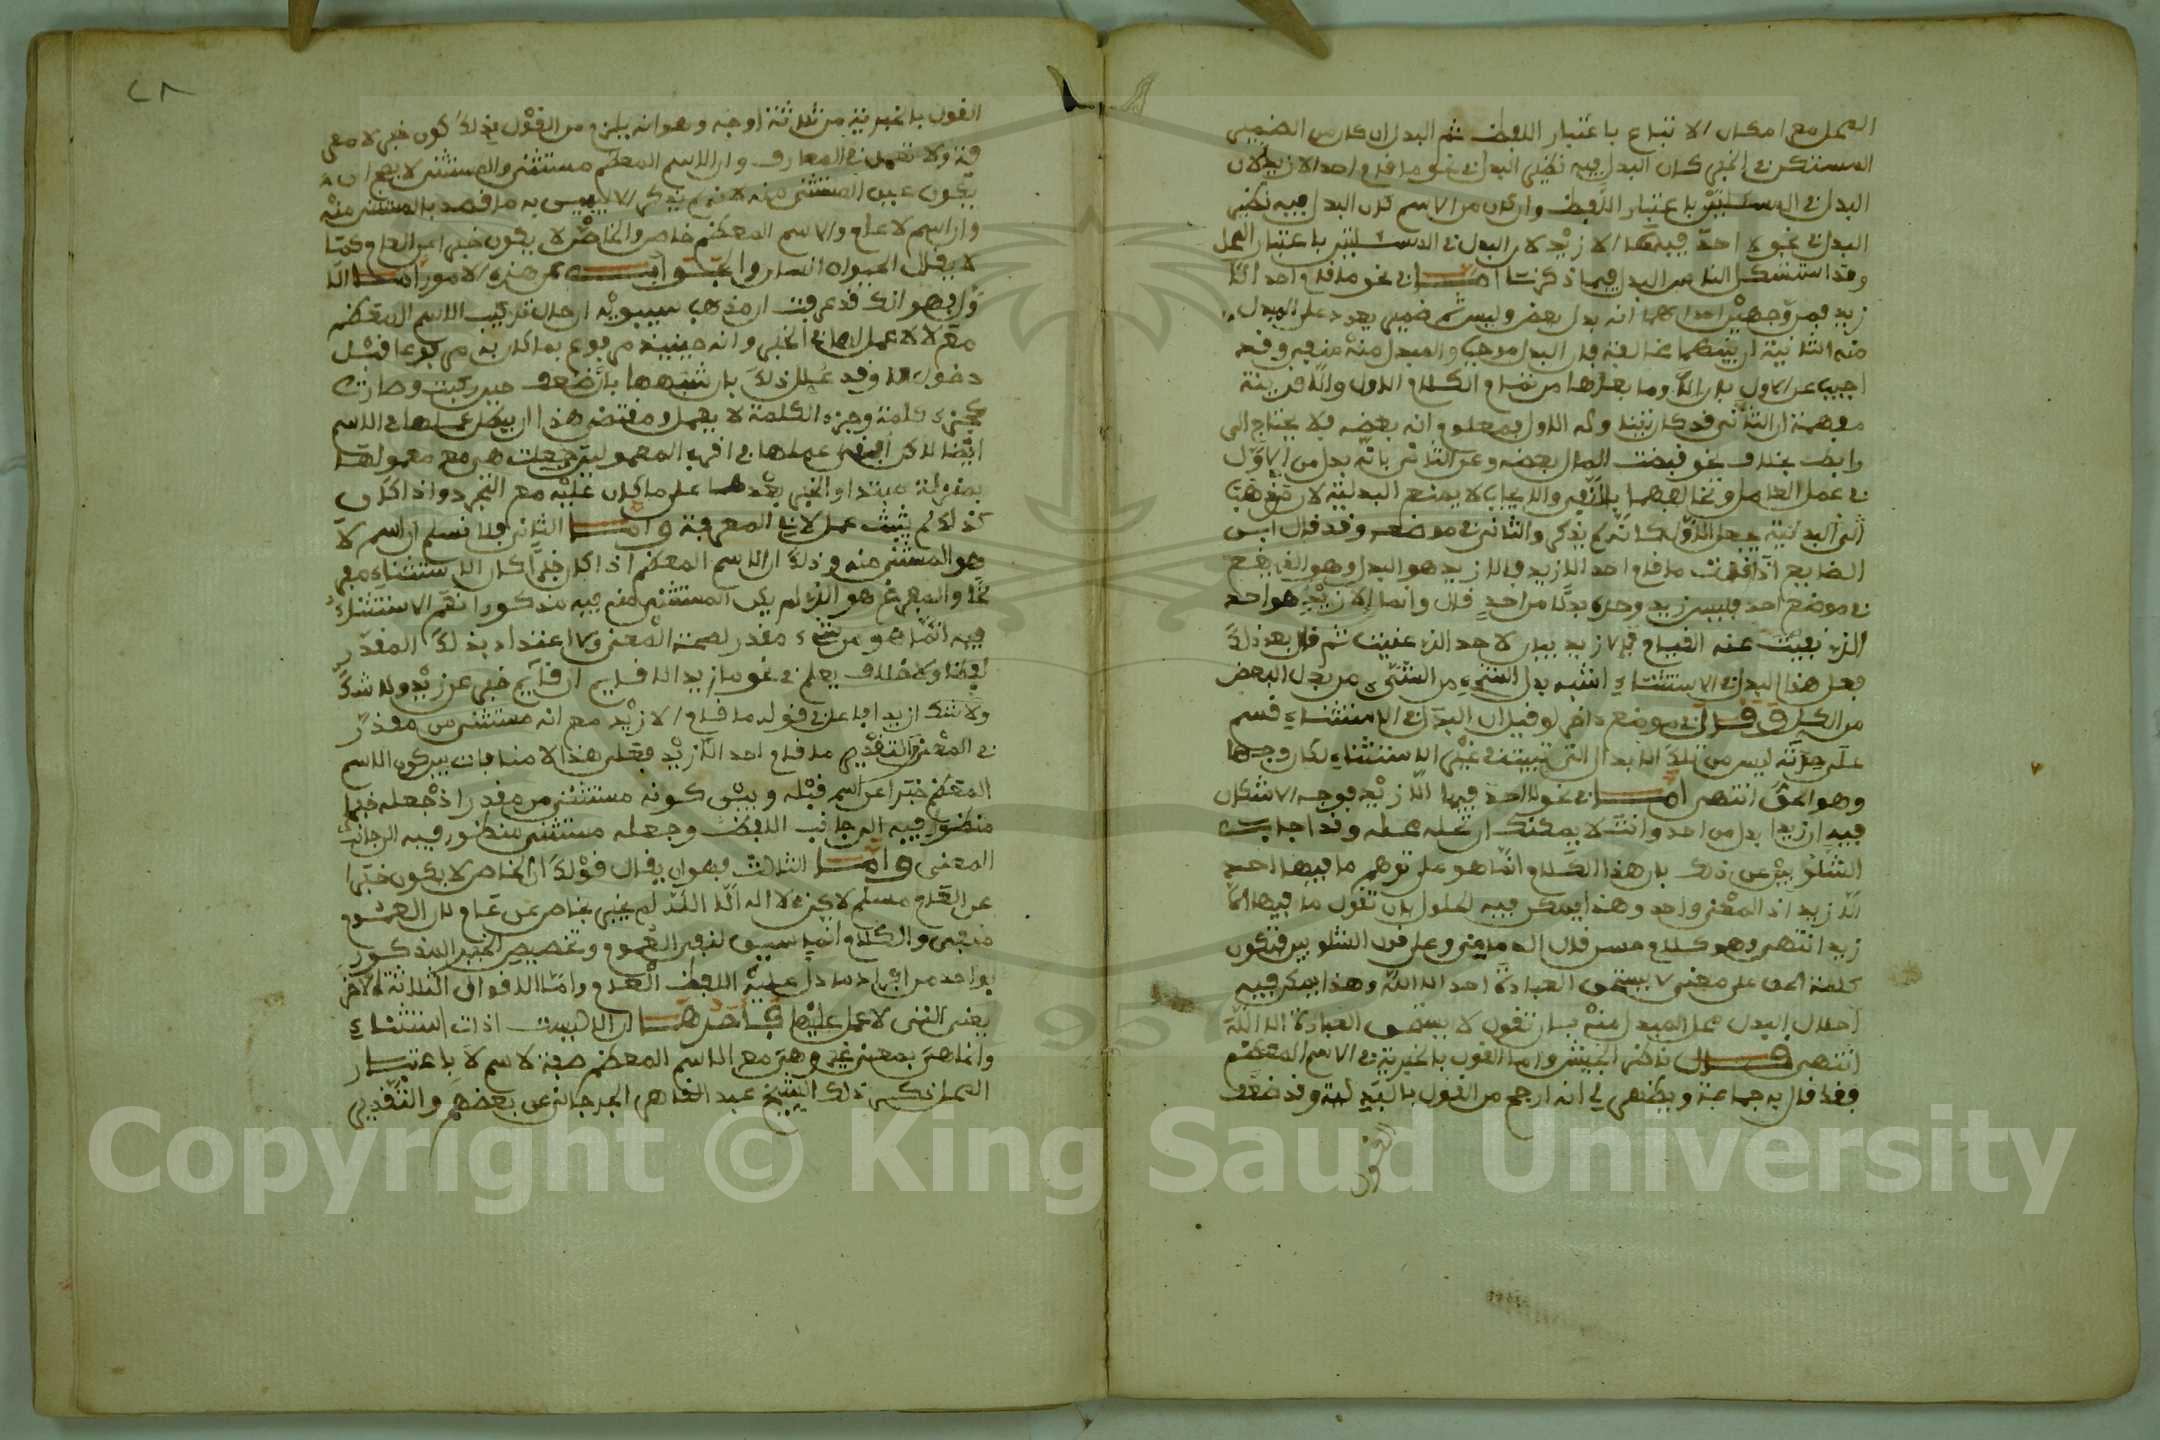 العمل مع امكان الاتباع باعتبار اللفظ ثم البدل ان كان من الضمير
المستكن في الخبر كان البدل فيه نظير البدل في نحو ما قام احد الا زيد لان
البدل في المسئلتين باعتبار اللفظ وان كان من الاسم كان البدل فيه نظير
البدل في نحو لا احد فيها الا زيد لان البدل في المسئلتين باعتبار المحل
وقد استشكل الناس البدل فيما ذكرنا اما في نحو ما قام احد الا
زيد فمن وجهين احدهما انه بدل بعض وليس ثم ضمير يعود على المبدل
منه الثانية ان بينهما مخالفة فان البدل موجب والمبدل منه منفي وقد
اجيب عن الاول بان الا وما بعدها من تمام الكلام الاول والا قرينة
مفهمة ان الثاني قد كان يتناوله الاول فمعلوم انه بعضه فلا يحتاج الى
رابط بخلاف نحو قبضت المال بعضه وعن الثاني بانه بدل من الاول
في عمل العامل وتخالفهما بالنفي والايجاب لا يمنع البدلية لان مذهب
البدلية يجعل الاول كانه لم يذكر والثاني في موضعه وقد قال ابن
الضايع اذا قلت ما قام احد الا زيد فالا زيد هو البدل وهو الذي يقع
في موضع احد فليس زيد وحده بدلا من احد قال وانما الا زيد هو احد
الذي نفيت عنه القيام فالا زيد بيان لاحد الذي عنيت ثم قال بعد ذلك
فعلى هذا البدل في الاستثناء اشبه ببدل الشيء من الشيء من بدل البعض
من الكل وقال في موضع اخر لو قيل ان البدل في الاستثناء قسم
على حدته ليس من تلك الابدال التي تبينت في غير الاستثناء لكان وجها
وهو الحق انتهى اما في نحو لا احد فيها الا زيد فوجه الاشكال
فيه ان زيدا بدل من احد وانت لا يمكنك ان تحله محله وقد اجاب
الشلوبين عن ذلك بان هذا الكلام انما هو على توهم ما فيها احد
الا زيد اذ المعنى واحد وهذا يمكن فيه الحلول بان تقول ما فيها الا
زيد انتهى وهو كلام حسن قال الدماميني وعلى قول الشلوبين فتكون
كلمة الحق على معنى لا يستحق العبادة احد الا الله وهذا يمكن فيه
احلال البدل محل المبدل منه بان تقول لا يستحق العبادة الا الله
انتهى قال ناظر الجيش واما القول بالخبرية في الاسم المعظم
فقد قال به جماعة ويظهر لي انه ارجح من القول بالبدلية وقد ضعف
القول
٤٨
القول بالخبرية من ثلاثة اوجه وهو انه يلزم من القول بذلك كون خبر لا معر
فة ولا تعمل في المعارف وان الاسم المعظم مستثنى والمستثنى لا يصح ان
يكون عين المستثنى منه لانه لم يذكر الا ليبين به ما قصد بالمستثنى منه
وان اسم لا عام والاسم المعظم خاص والخاص لا يكون خبرا عن العام كما
لا يقال الحيوان انسان والجواب عن هذه الامور اما الا
ول فهو انك قد عرفت ان مذهب سيبويه ان حال تركيب الاسم المعظم
مع لا لا عمل لها في الخبر وانه حينئذ مرفوع بما كان به مرفوعا قبل
دخول لا وقد علل ذلك بان شبهها بان ضعف حين ركبت وصارت
كجزء كلمة وجزء الكلمة لا يعمل ومقتضى هذا ان يبطل عملها في الاسم
ايضا لكن ابقي عملها في اقرب المعمولين وجعلت هي مع معمولها
بمنزلة مبتدا والخبر بعدهما على ما كان عليه مع التجرد واذا كان
كذلك لم يثبت عمل لا في المعرفة واما الثاني فلا نسلم ان اسم لا
هو المستثنى منه وذلك ان الاسم المعظم اذا كان خبرا كان الاستثناء مفر
غا والمفرغ هو الذي لم يكن المستثنى منه فيه مذكورا نعم الاستثناء
فيه انما هو من شيء مقدر لصحة المعنى ولا اعتداد بذلك المقدر
لفظا ولا خلاف يعلم في نحو ما زيد الا قايم ان قايم خبر عن زيد ولا شك
ولا شك ان زيدا فاعل في قوله ما قام الا زيد مع انه مستثنى من مقدر
في المعنى التقدير ما قام احد الا زيد فعلى هذا لا منافاة بين كون الاسم
المعظم خبرا عن اسم قبله وبين كونه مستثنى من مقدر اذ جعله خبرا
منظور فيه الى جانب اللفظ وجعله مستثنى منظور فيه الى جانب
المعنى واما الثالث فهو ان يقال قولك ان الخاص لا يكون خبرا
عن العام مسلم لكن في لا اله الا الله لم يخبر بخاص عن عام لان العموم
منفي والكلام انما سيق لنفي العموم وتخصيص الخبر المذكور
بواحد من افراد ما دل عليه اللفظ العام واما الاقوال الثلاثة الاخر
يعني التي لا عمل عليها فاحدها ان الا ليست اداة استثناء
وانما هي بمعنى غير وهي مع الاسم المعظم صفة لاسم لا باعتبار
المحل ذكر ذلك الشيخ عبد القاهر الجرجاني عن بعضهم والتقدير
Copyright © King Saud University